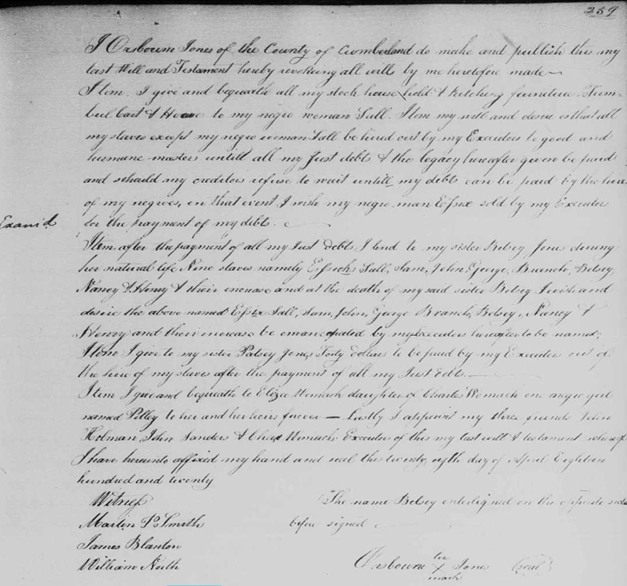 259
I Orsbourn Jones of the County of Cumberland do make and publish this my
last Will and Testament hereby revoking all wills by me heretofore made —
Item I give and bequeathe all my stock house hold & kitching furniture
bul Cart & Horse to my negro woman Sall. Item my will and desire is that all
my slaves except my negro woman Sall be hired out by my Executors to good and
humane masters untill all my Just debts & the legacy hereafter given be paid
and schould my creditors refuse to wait untill my debts can be paid by the hire
of my negroes, in that event I wish my negro man sold by my Executors
for the payment of my debts.
Exam'd
Item after the payment of all my Just Debts I lend to my sister Betsey Jones during
her natural life Nine slaves namely Sall, Sam, John, George, Branch, Betsey,
Nancy & Henry & their increase and at the death of my said sister Betsey I wish and
desire the above named Sall, Sam, John, George Branch, Betsey, Nancy &
Henry and their increase be emancipated by my Executors hereafter to be named,
Item I give to my sister Patsey Jones Forty Dollars to be paid by my Executors out of
the hire of my slaves after the payment of all my Just debts. —
Item I give and bequeath to Eliza Womack daughter of Charles Womack one negro girl
named to her and her heirs forever — Lastly I appoint my three friends John
Holman John Sanders & Womack Executors of this my last will & testament
I have hereunto affixed my hand and seal this twenty day of April Eighteen
hundred and twenty
Witness
The name Betsey interlined on the opposite side
Martin P. Smith
before signed
James Blanton
William North
Orsbourn his x mark Jones (Seal)